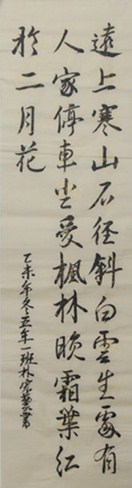 遠上寒山石径斜白雲生處有
人家停車坐愛楓林晚霜葉紅
於二月花
乙未年冬五年一班朴